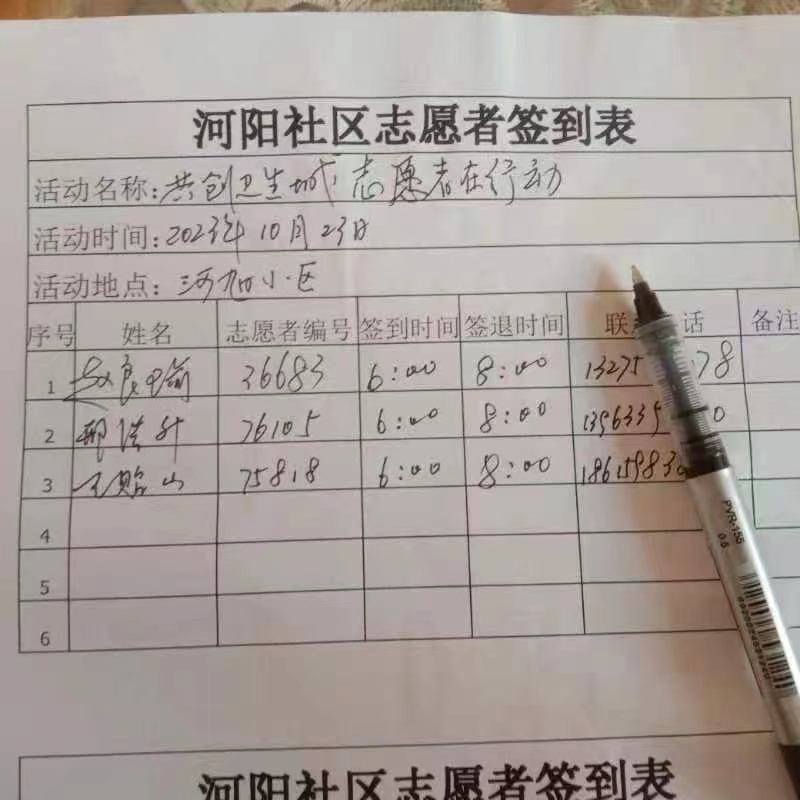 河阳社区志愿者签到表
活动名称:共创卫生城 志愿者在行动
活动时间:2023年10月23日
活动地点:河阳小区
序号 姓名 志愿者编号 签到时间 签退时间 联 话 备注
1 赵良 36683 6:00 8:00 13275 78
2 邢洪升 76105 6:00 8:00 1396335 0
3 王贻山 75818 6:00 8:00 186159830
4
5
6
PVR-155
0.5
河阳社区志愿者签到表